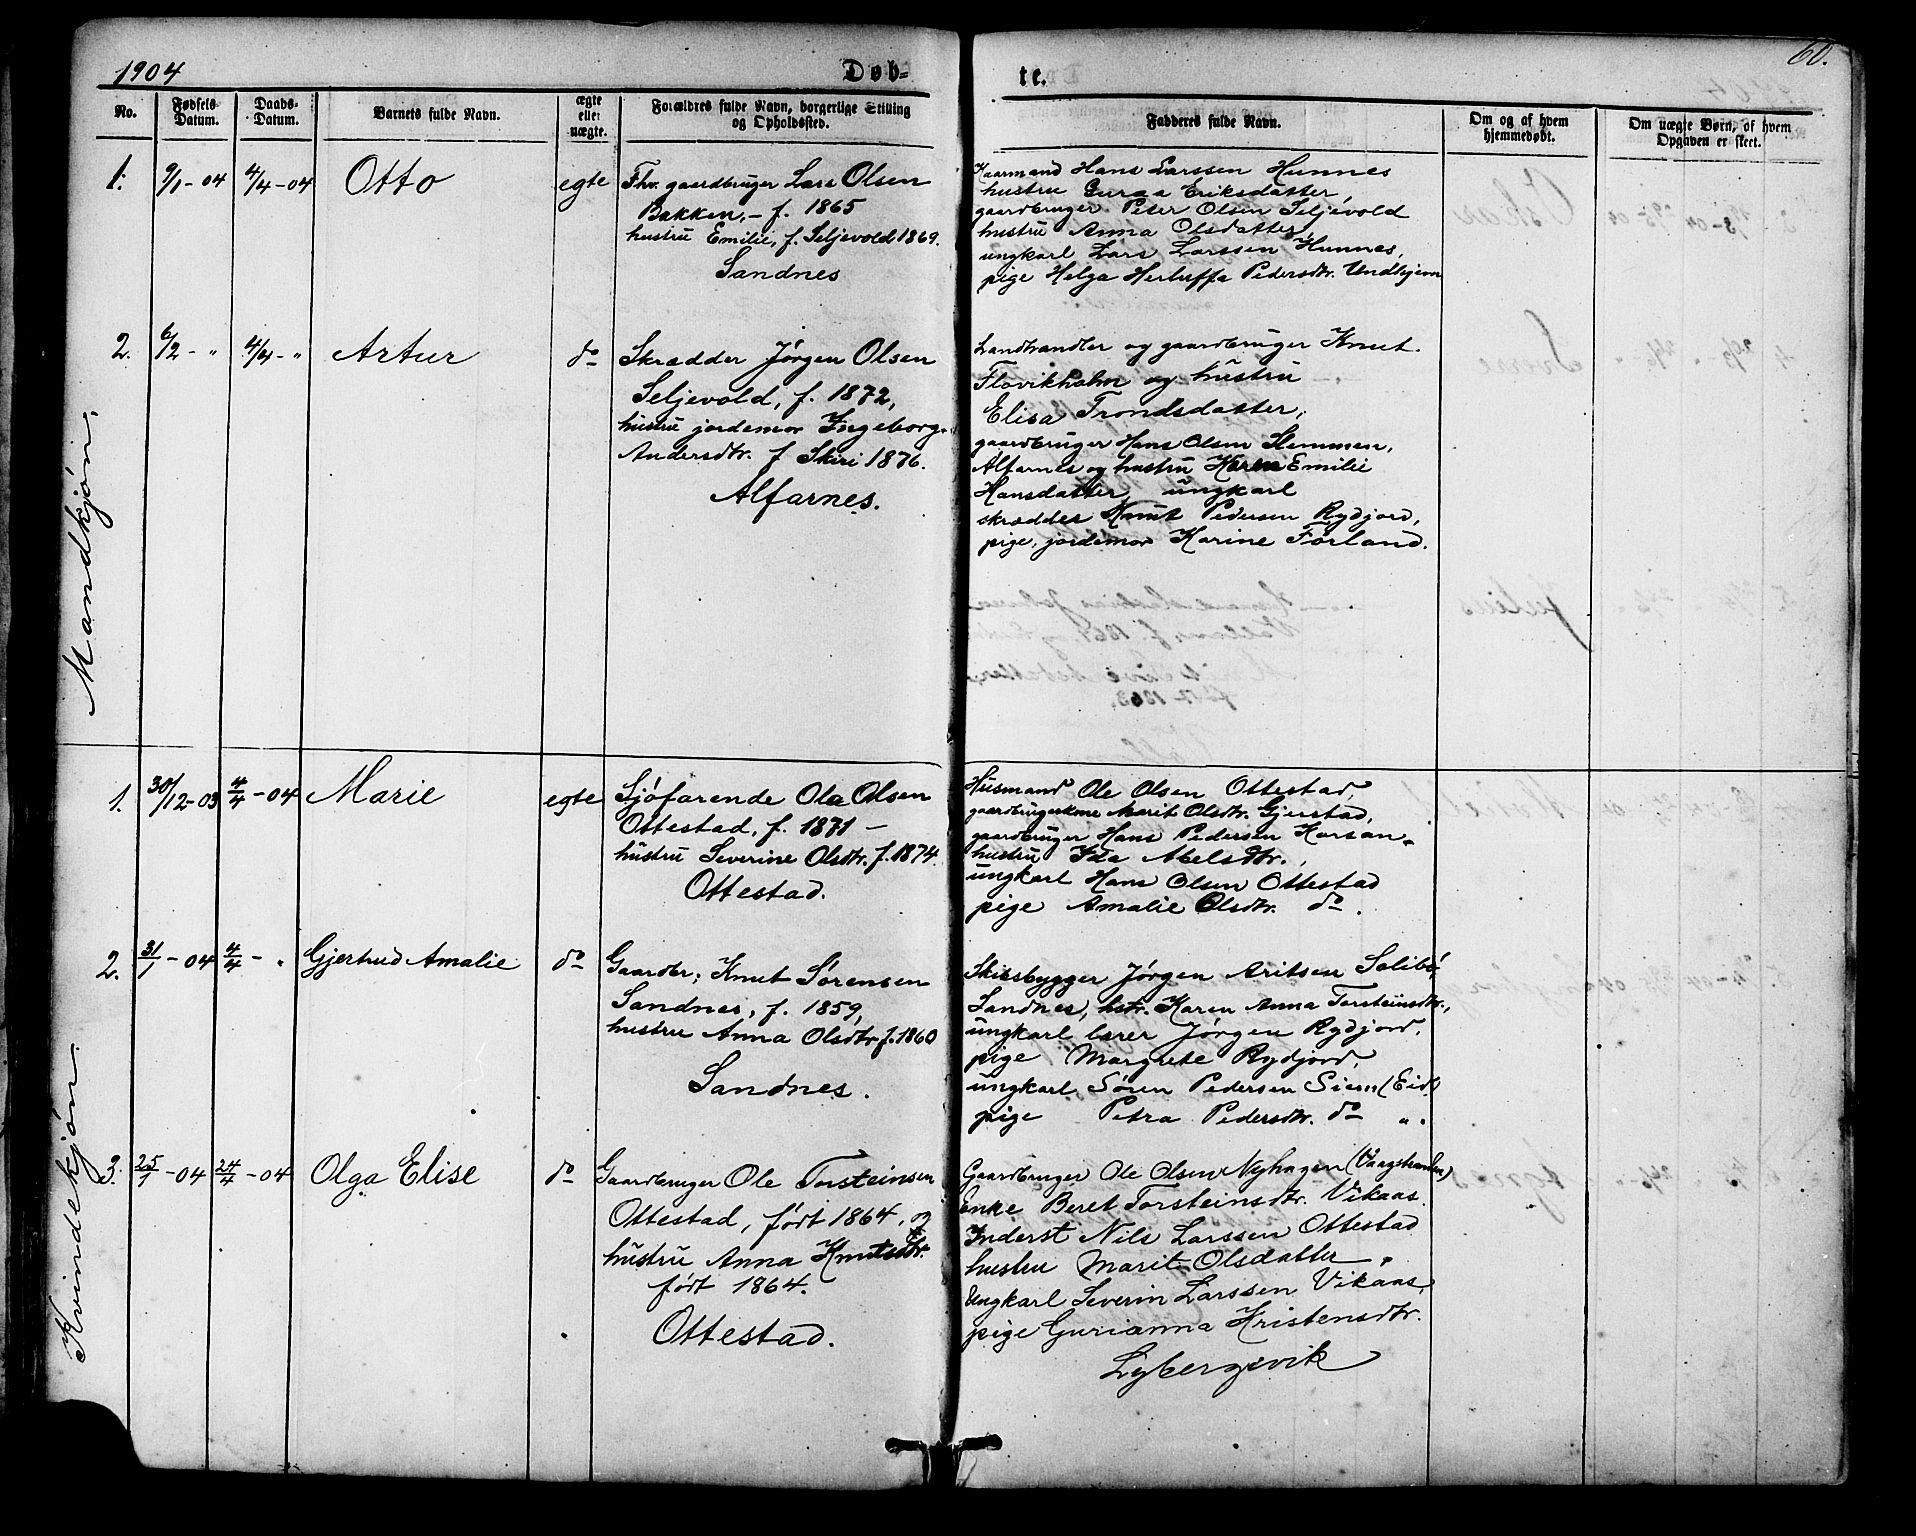 1904
Døb-
te.
60.
No.
Fødsels
Datum.
Daabs-
Datum.
Barnets fulde Navn.
ægte
eller
uægte.
Forældres fulde Navn, borgerlige Stilling
og Opholdssted.
Fadderes fulde Navn.
Om og af hvem
hjemmedøbt.
Om uægte Børn, af hvem
Opgaven er skeet.
Mandkjøn.
1. 9/1-04 4/4-04 Otto egte
Fhv. gaardbruger Lars Olsen
Bakken, - f. 1865
hustru Emilie, f. Seljevold 1869.
Sandnes
Kaarmand Hans Larssen Hunnes
hustru Guraa Eriksdatter,
gaardbruger Peter Olsen Seljevold
hustru Anna Olsdatter,
ungkarl Lars Larssen Hunnes,
pige Helga Herluffa Pedersdtr. Undhjem
2. 6/2 - " 4/4 - " Artur do
Skrædder Jørgen Olsen
Seljevold, f. 1872,
hustru jordemor Ingeborg
Andersdtr. f Skiri 1876.
Alfarnes.
Landhandler og gaardbruger Knut
Flovikholm og hustru
Elisa Trondsdatter,
gaardbruger Hans Olsen Slemmen,
Alfarnes og hustru Karen Emilie
Hansdatter, ungkarl
skrædder Knut Pedersen Rydjord,
pige, jordemor Karine Førland.
Kvindekjøn.
1. 30/12-03 4/4-04 Marie egte
Sjøfarende Ola Olsen
Ottestad, f. 1871 -
hustru Severine Olsdtr. f. 1874.
Ottestad.
Husmand Ole Olsen Ottestad,
gaardbrugerkone Marit Olsdtr. Gjerstad,
gaardbruger Hans Pedersen Horsan-
hustru Ida Abelsdtr.,
ungkarl Hans Olsen Ottestad
pige Amalie Olsdtr. do.
2. 31/1-04 4/4 - " Gjertrud Amalie do
Gaardbr; Knut Sørensen
Sandnes, f. 1859,
hustru Anna Olsdtr f. 1860
Sandnes.
Skibsbygger Jørgen Aritsen Solibø,
Sandnes, hstr. Karen Anna Torsteinsdtr.,
ungkarl lærer Jørgen Rydjord,
pige Margrete Rydjord,
ungkarl, Søren Pedersen Siem (Eid)
pige Petra Pedersdtr. do ".
3. 25/1-04 24/4-04 Olga Elise do
Gaardbruger Ole Torsteinsen
Ottestad, født 1864, og
hustru Anna Knutsdtr.
født 1864.
Ottestad.
Gaardbruger Ole Olsen Nyhagen (Vaagstranden)
Enke Beret Torsteinsdtr. Vikaas
Inderst Nils Larssen Ottestad
hustru Marit Olsdatter "
Ungkarl Severin Larssen Vikaas,
pige Gurianna Kristensdtr.
Lybergsvik